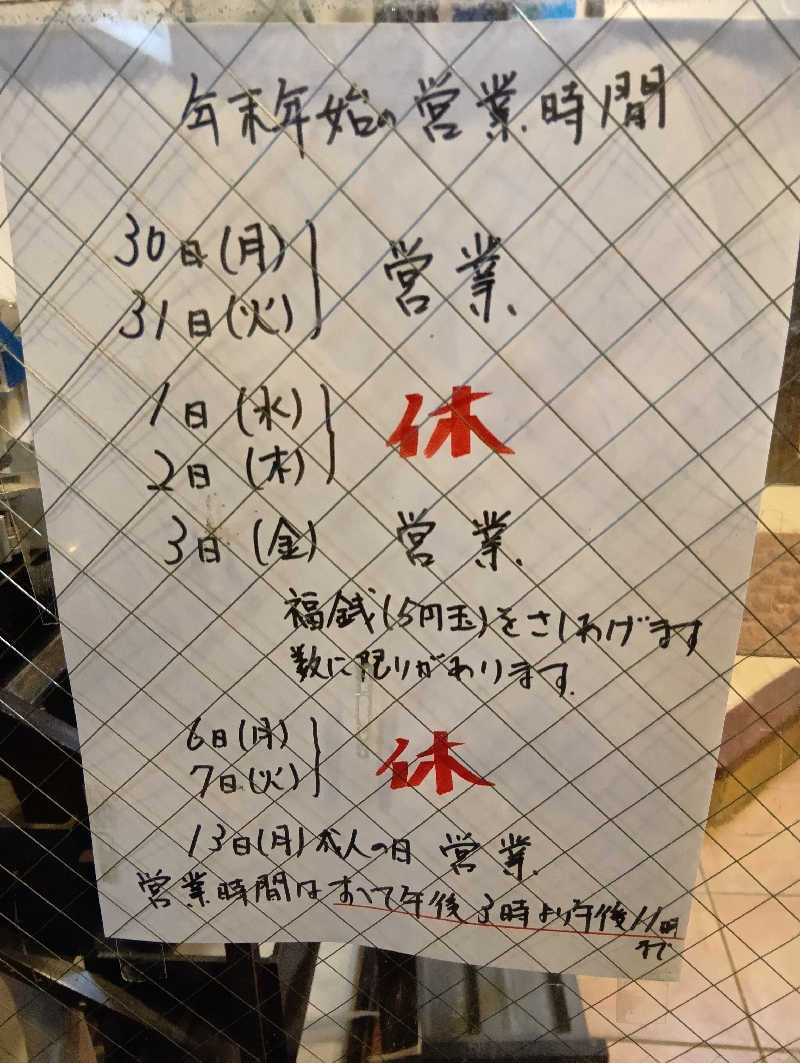 年末年始の営業時間
30日(月)
31日(火)
営業
1日(水)
2日(木)
休
3日(金) 営業
福銭(5円玉)をさしあげます
数に限りがあります.
6日(月)
7日(火)
休
13日(月)成人の日 営業
営業時間はすべて午後3時より午後11時
まで